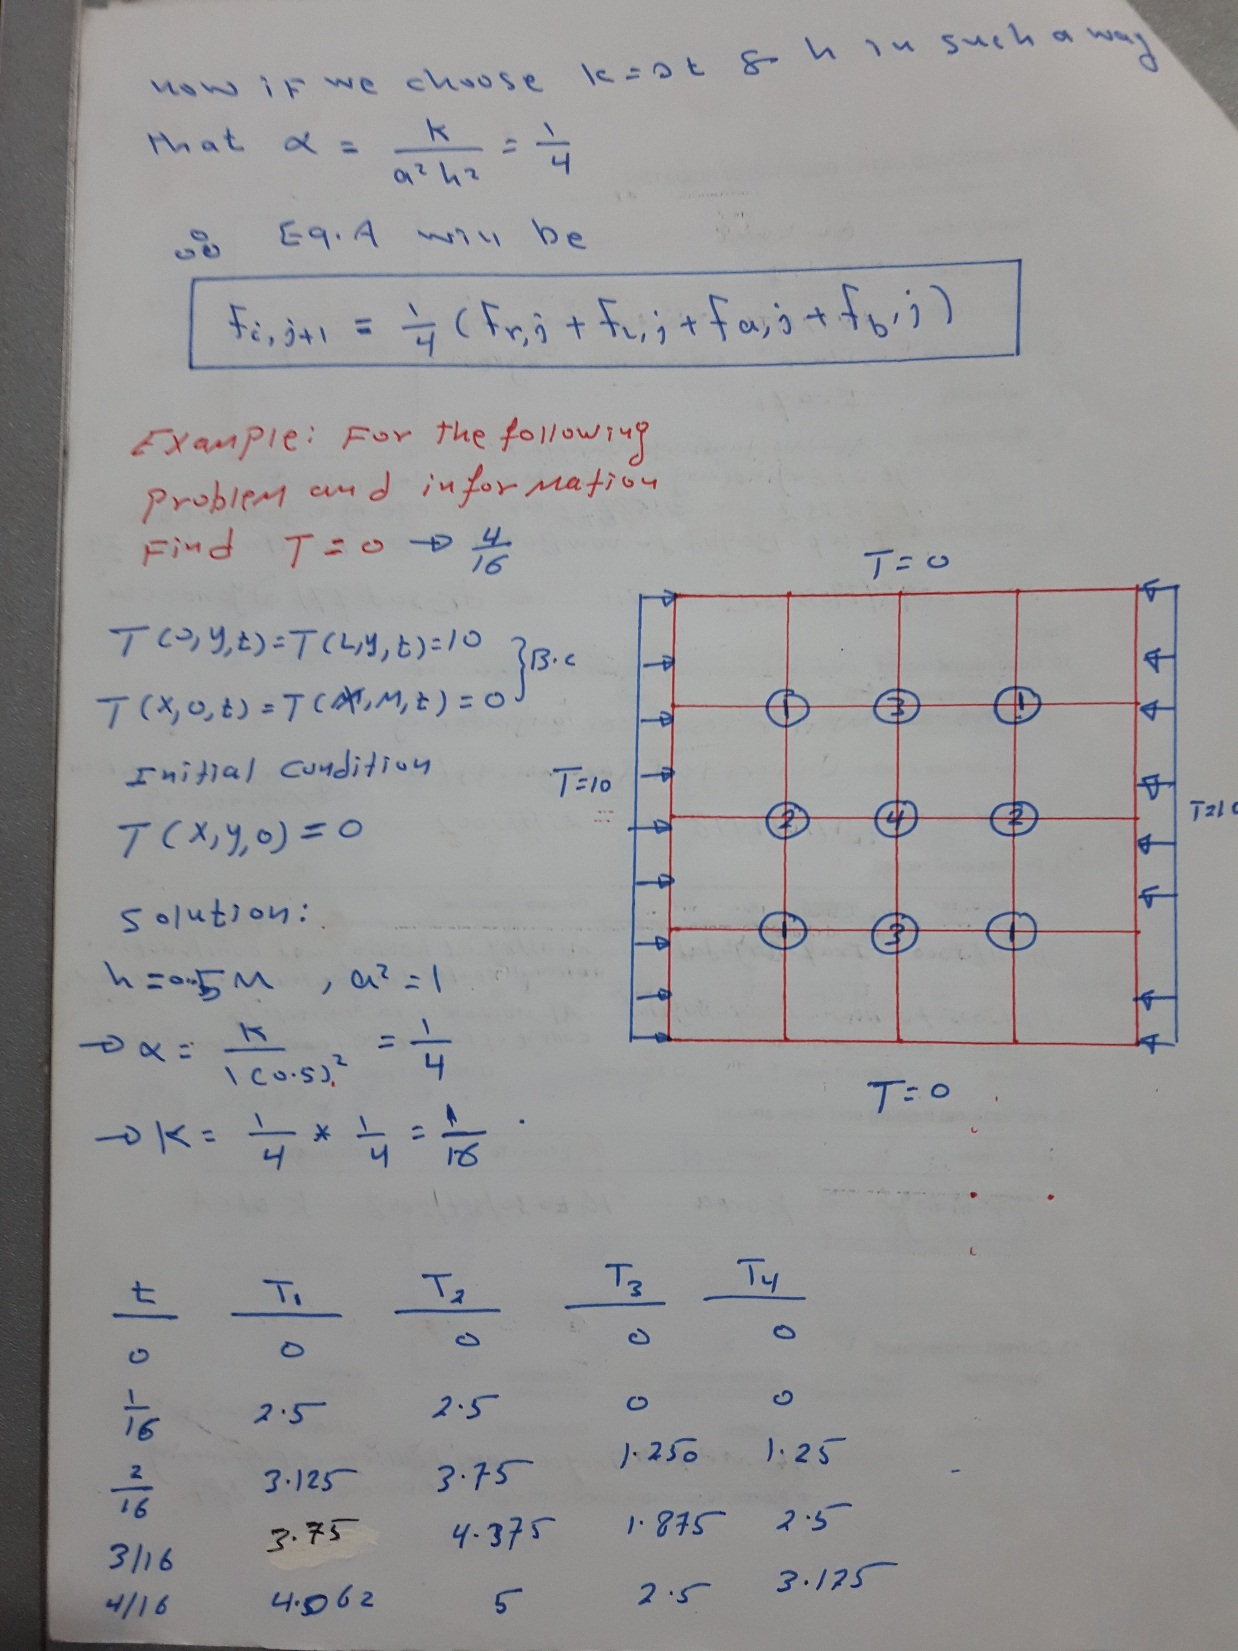 now if we choose k = Δt & h in such a way
that α = k / a² h² = 1/4
∴ Eq. A will be
f i, j+1 = 1/4 ( f r,j + f L,j + f a,j + f b,j )
Example: For the following
problem and information
Find T = 0 → 4/16
T(0,y,t) = T(L,y,t) = 10
T(x,0,t) = T(x,M,t) = 0 } B.C
Initial condition
T(x,y,0) = 0
Solution:
h = 0.5 M , a² = 1
→ α = k / 1(0.5)² = 1/4
→ K = 1/4 * 1/4 = 1/16 .
T = 0
1 3 1
T=10
2 4 2
T=10
1 3 1
T = 0
t T₁ T₂ T₃ T₄
0 0 0 0 0
1/16 2.5 2.5 0 0
2/16 3.125 3.75 1.250 1.25
3/16 3.75 4.375 1.875 2.5
4/16 4.062 5 2.5 3.125